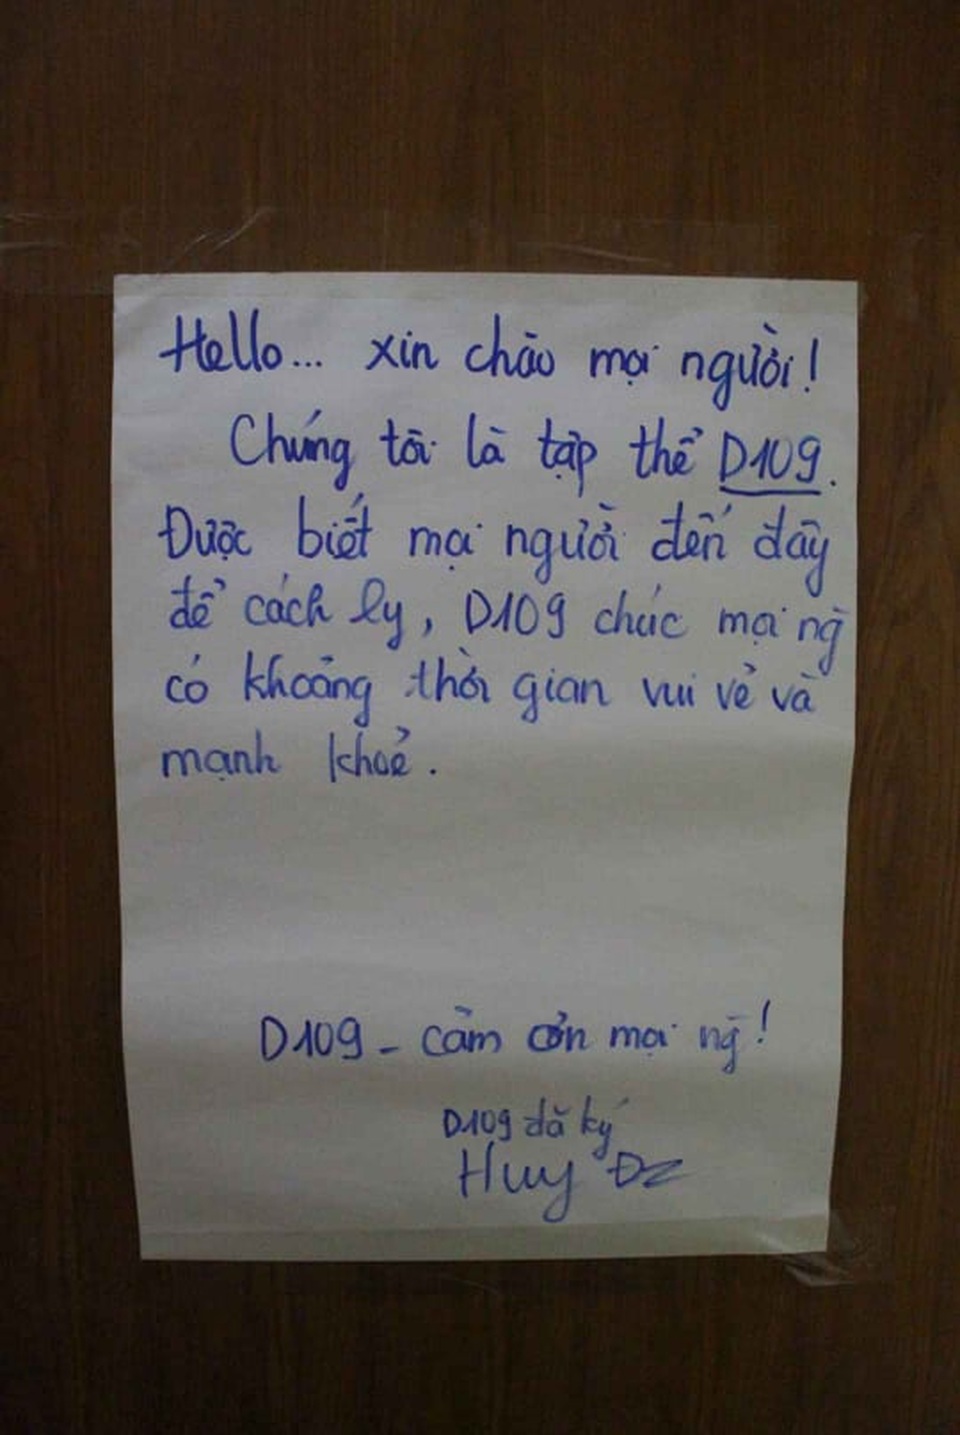 Hello... xin chào mọi người!
Chúng tôi là tập thể D109.
Được biết mọi người đến đây
để cách ly, D109 chúc mọi ng̀
có khoảng thời gian vui vẻ và
mạnh khoẻ.
D109 - cảm ơn mọi ng̀!
D109 đã ký
Huy ĐZ